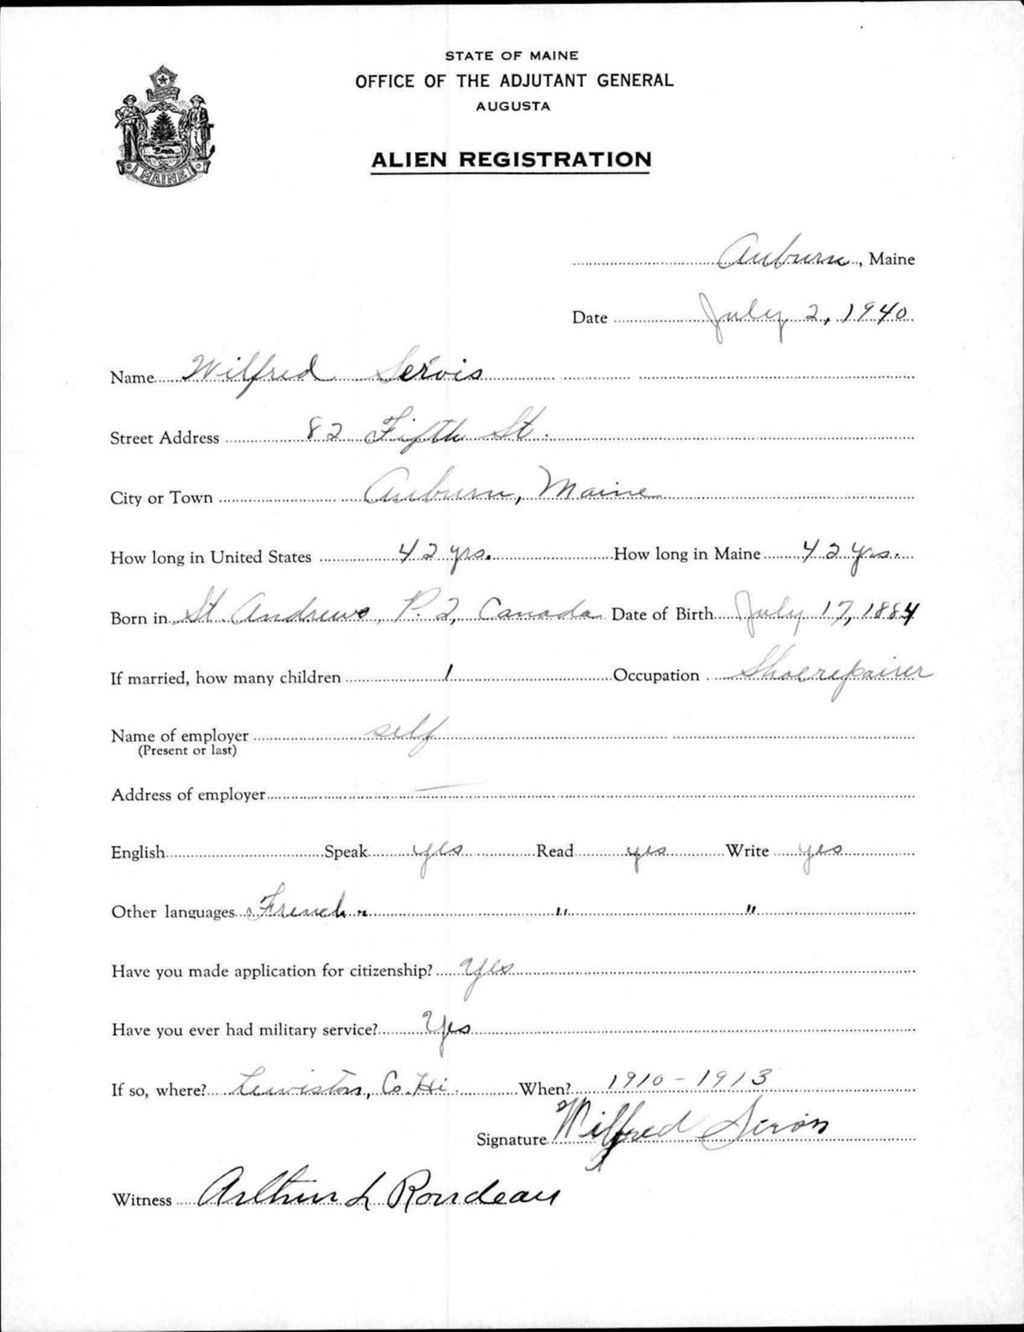 STATE OF MAINE
OFFICE OF THE ADJUTANT GENERAL
AUGUSTA
ALIEN REGISTRATION
MAINE
Auburn, Maine
Date July 2, 1940
Name Wilfred Servis
Street Address 82 Fifth St.
City or Town Auburn, Maine
How long in United States 42 yrs. How long in Maine 42 yrs.
Born in St. Andrews, P. 2, Canada Date of Birth July 17, 1884
If married, how many children 1 Occupation Shoerepairer
Name of employer self
(Present or last)
Address of employer —
English Speak yes Read yes Write yes
Other languages French " " "
Have you made application for citizenship? Yes
Have you ever had military service? Yes
If so, where? Lewiston, Co. Hi. When? 1910 - 1913
Signature Wilfred
Witness Arthur L Rondeau